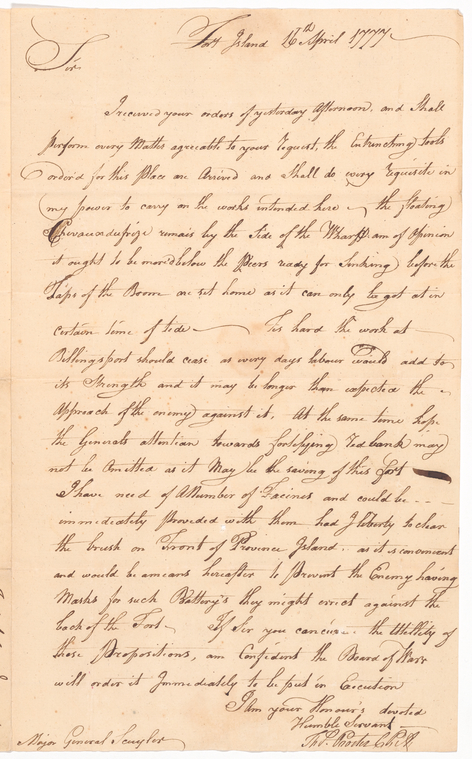 Fort Island 16th April 1777
Sir
I received your orders of yesterday Afternoon, and Shall
perform every Matter agreeable to your request, the Entrenching tools
order'd for this Place are Arrived and Shall do every Requisite in
my power to carry on the works intended here the floating
Chevauxdefrize remain by the Side of the Wharff am of Opinion
it ought to be moor'd below the Peers ready for Sinking before the
Taps of the Boom are set home as it can only be got at in
certain time of tide Tis hard the work at
Billingsport should cease as every days labour would add to
its Strength and it may be longer than expected the
Approach of the enemy against it. At the same time hope
the Generals attention towards fortifying Redbank may
not be Omitted as it May be the saving of this Fort
I have need of A Number of Facines and could be
immediately Provided with them had I liberty to clear
the brush on Front of Province Island.. as it is convenient
and would be a means hereafter to Prevent the Enemy having
Masks for such Battery's they might errect against the
back of the Fort If Sir you the Uttellety of
these Propositions, am Confident the Board of Warr
will order it Immediately to be put in Execution
I Am your Honour's devoted
Humble Servant
Major General Scuyler Tho.s Procter Col